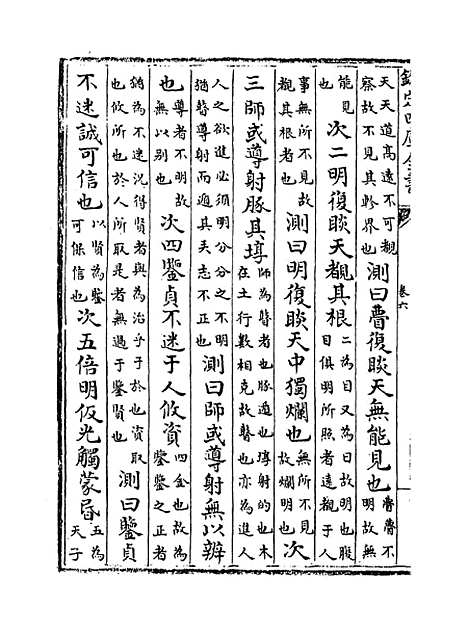 欽定四庫全書 卷六
天天道高遠不可觀
察故不見其畛界也
測曰瞢復睒天無能見也
瞢瞢不
明故無
能見
也
次二明復睒天覩其根
二為目又為日故明也
目俱明所照者遠觀于人
事無所不見故
覩其根者也
測曰明復睒天中獨爛也
無所不見
故爛明也
次
三師或導射豚其埻
師為瞽者也豚遁也埻射的也木
在土行數相克故瞽也亦為進人
人之欲進必須明分分之不明
猶瞽導射而遁其矢志不正也
測曰師或導射無以辨
也
導者不明故
無以別也
次四鑒貞不迷于人攸資
四金也故為
鑒鑒之正者
猶為不迷況得賢者與為治乎于於也資取
也攸所也於人所取是者無過于鑒賢也
測曰鑒貞
不迷誠可信也
以賢為鑒
可保信也
次五倍明仮光觸蒙昏
五為
天子